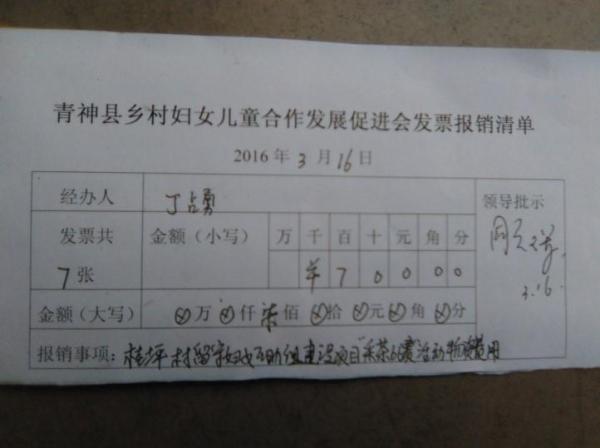 青神县乡村妇女儿童合作发展促进会发票报销清单
2016年3月16日
经办人 丁占勇 领导批示
发票共 金额（小写） 万 千 百 十 元 角 分
7张 ¥ 7 0 0 0 0
3.16.
金额（大写） ⊗万⊗仟柒佰⊗拾⊗元⊗角⊗分
报销事项：桂坪村留守妇女互助组建设项目采茶比赛活动物资费用